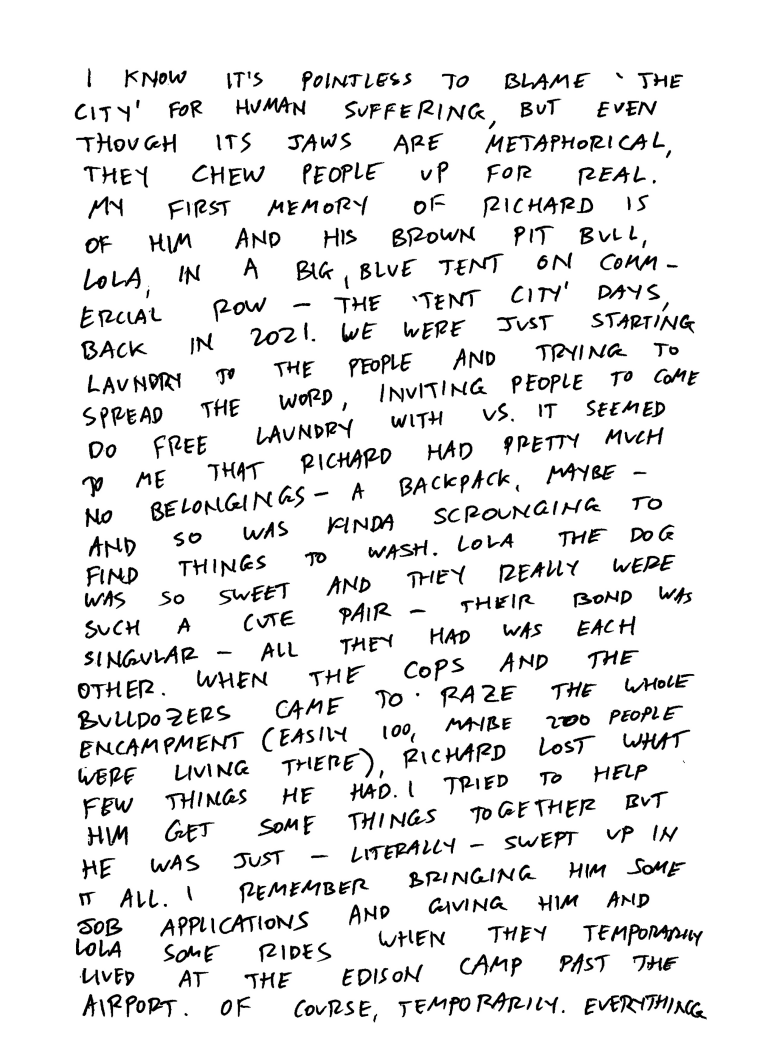 I KNOW IT'S POINTLESS TO BLAME 'THE
CITY' FOR HUMAN SUFFERING, BUT EVEN
THOUGH ITS JAWS ARE METAPHORICAL,
THEY CHEW PEOPLE UP FOR REAL.
MY FIRST MEMORY OF RICHARD IS
OF HIM AND HIS BROWN PIT BULL,
LOLA, IN A BIG, BLUE TENT ON COMM-
ERCIAL ROW – THE 'TENT CITY' DAYS,
BACK IN 2021. WE WERE JUST STARTING
LAUNDRY TO THE PEOPLE AND TRYING TO
SPREAD THE WORD, INVITING PEOPLE TO COME
DO FREE LAUNDRY WITH US. IT SEEMED
TO ME THAT RICHARD HAD PRETTY MUCH
NO BELONGINGS – A BACKPACK, MAYBE –
AND SO WAS KINDA SCROUNGING TO
FIND THINGS TO WASH. LOLA THE DOG
WAS SO SWEET AND THEY REALLY WERE
SUCH A CUTE PAIR – THEIR BOND WAS
SINGULAR – ALL THEY HAD WAS EACH
OTHER. WHEN THE COPS AND THE
BULLDOZERS CAME TO RAZE THE WHOLE
ENCAMPMENT (EASILY 100, MAYBE 200 PEOPLE
WERE LIVING THERE), RICHARD LOST WHAT
FEW THINGS HE HAD. I TRIED TO HELP
HIM GET SOME THINGS TOGETHER BUT
HE WAS JUST – LITERALLY – SWEPT UP IN
IT ALL. I REMEMBER BRINGING HIM SOME
JOB APPLICATIONS AND GIVING HIM AND
LOLA SOME RIDES WHEN THEY TEMPORARILY
LIVED AT THE EDISON CAMP PAST THE
AIRPORT. OF COURSE, TEMPORARILY. EVERYTHING